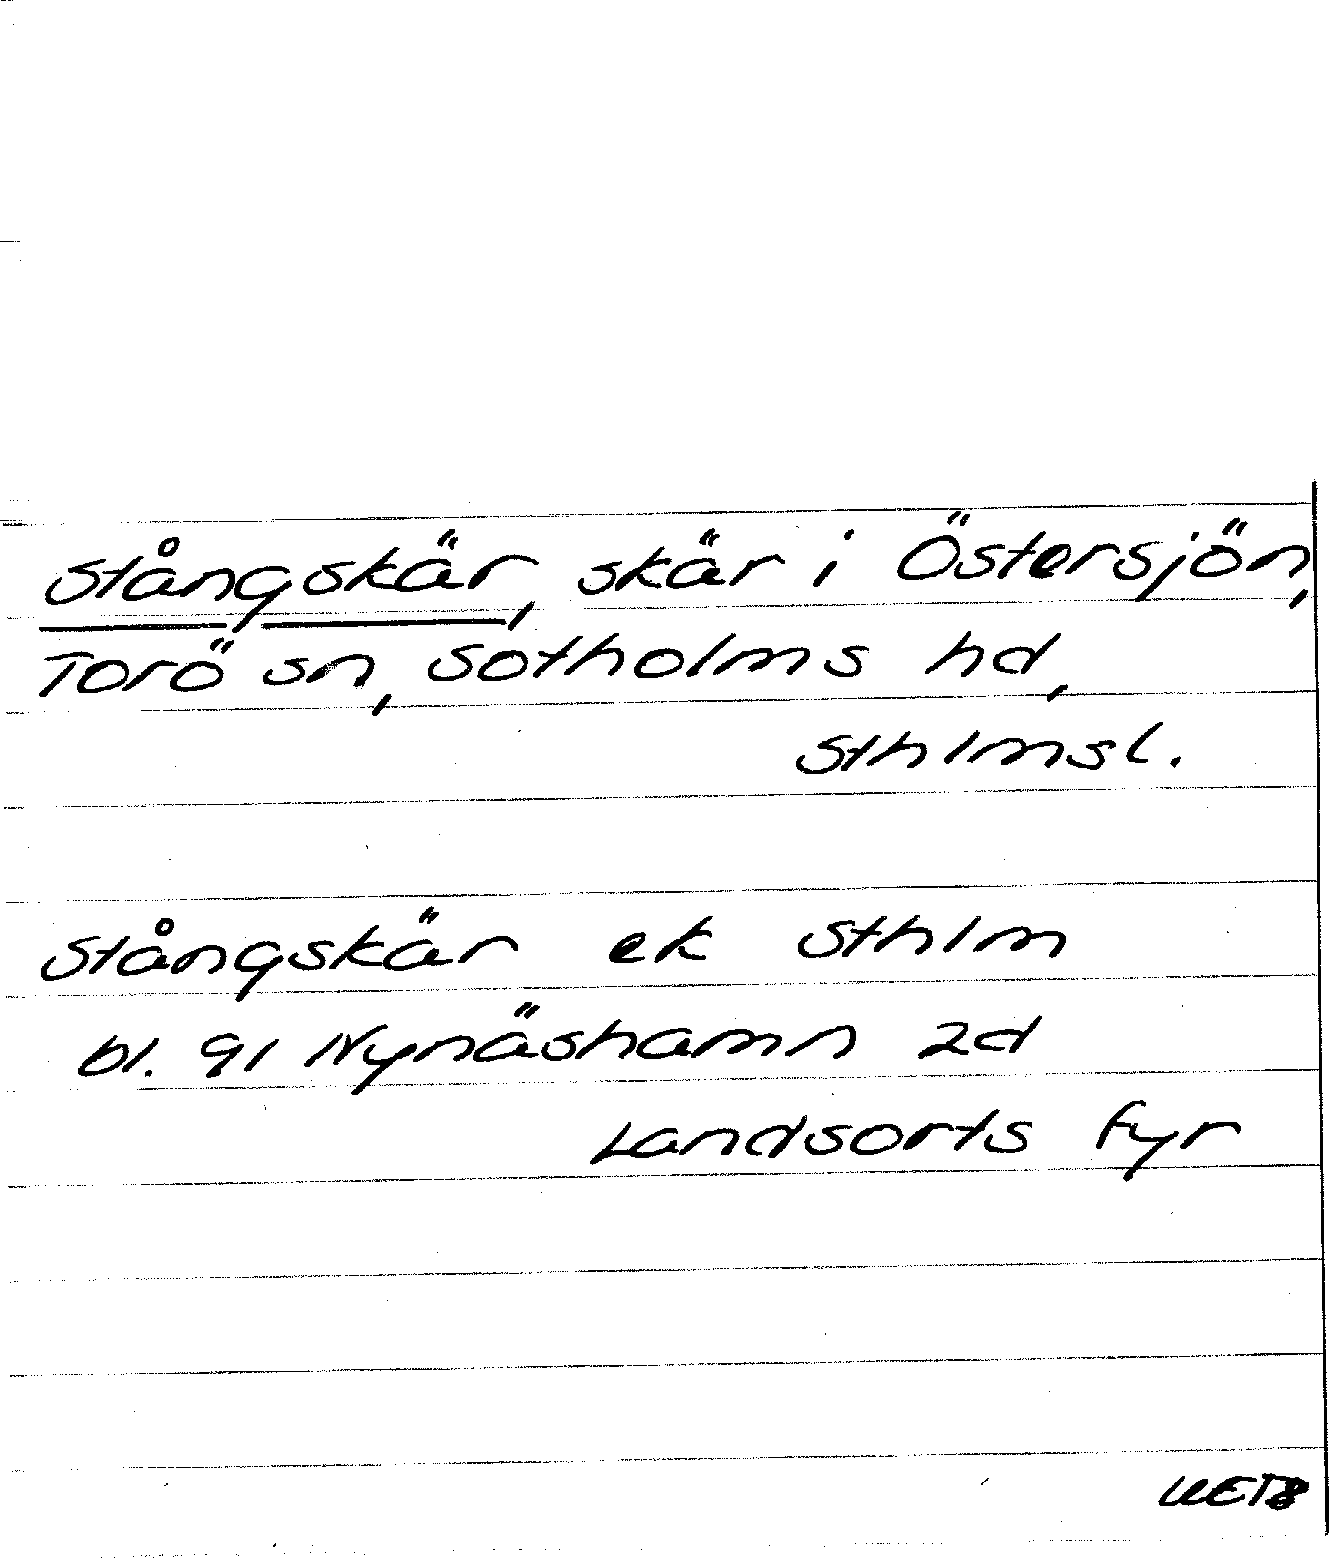 Stångskär, skär i Östersjön,
Torö sn, Sotholms hd,
Sthlmsl.
Stångskär ek Sthlm
bl. 91 Nynäshamn 2d
Landsorts fyr